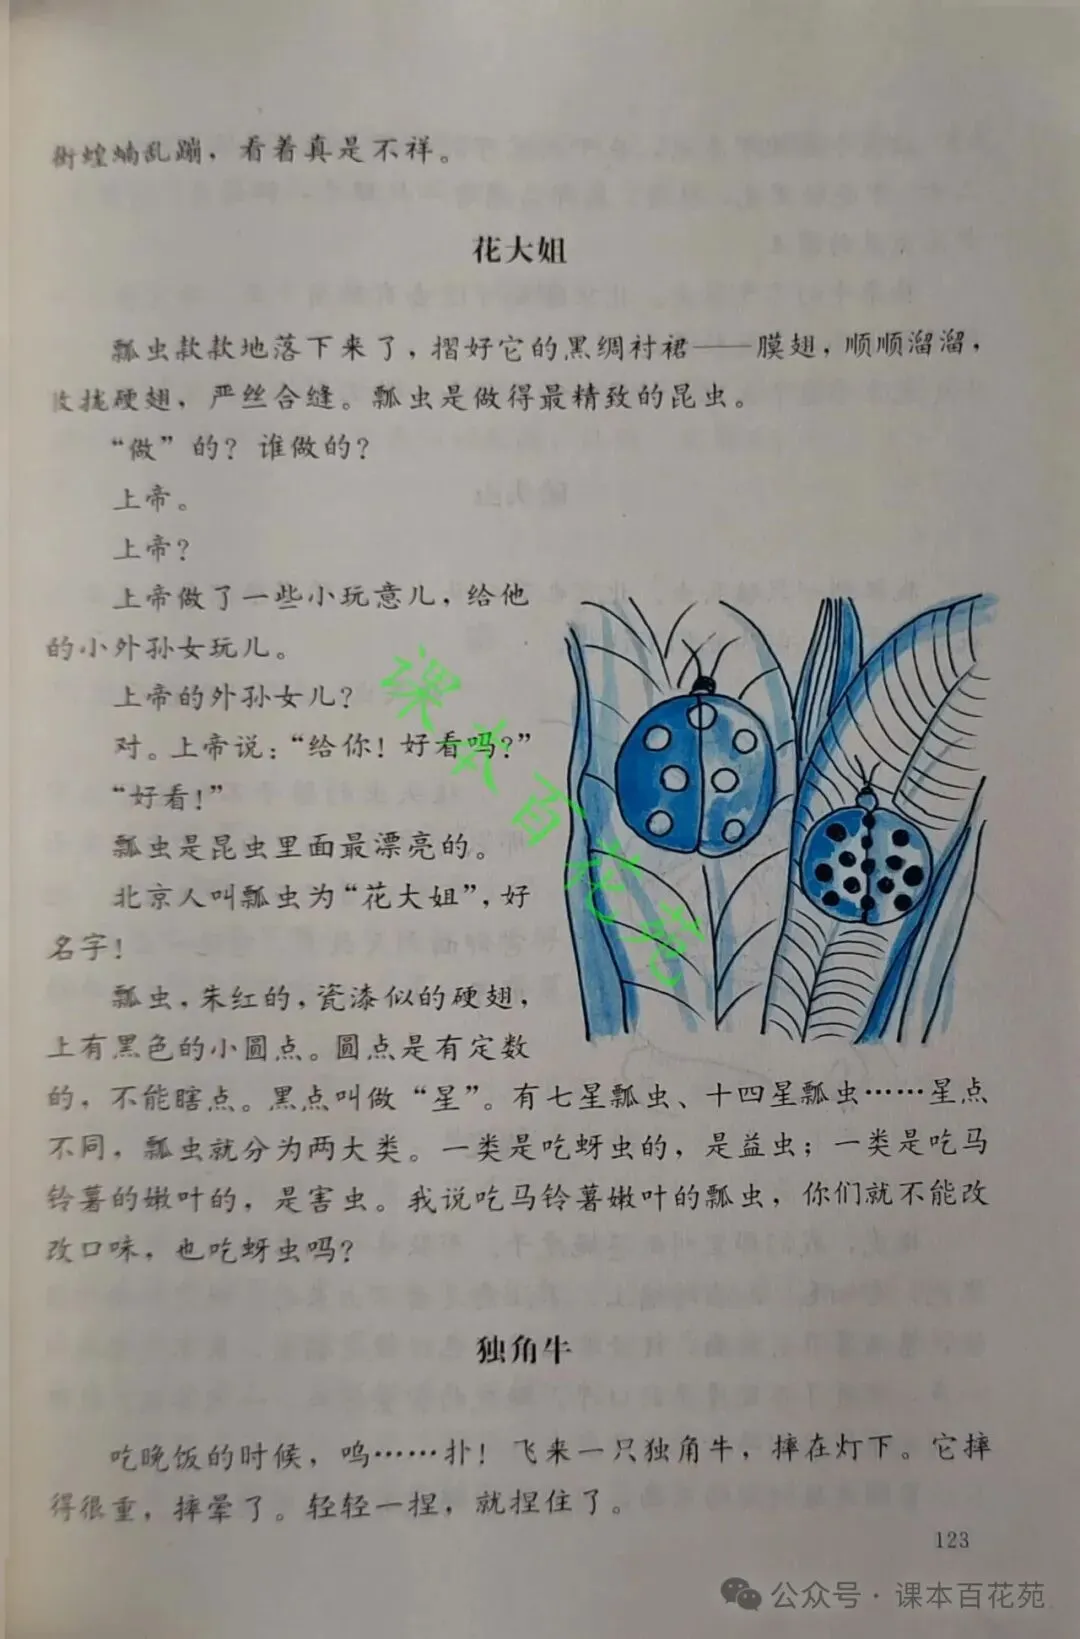 街蝗蝻乱蹦，看着真是不祥。
花大姐
瓢虫款款地落下来了，摺好它的黑绸衬裙——膜翅，顺顺溜溜，
收拢硬翅，严丝合缝。瓢虫是做得最精致的昆虫。
“做”的？谁做的？
上帝。
上帝？
上帝做了一些小玩意儿，给他
的小外孙女玩儿。
上帝的外孙女儿？
对。上帝说：“给你！好看吗？”
“好看！”
瓢虫是昆虫里面最漂亮的。
北京人叫瓢虫为“花大姐”，好
名字！
瓢虫，朱红的，瓷漆似的硬翅，
上有黑色的小圆点。圆点是有定数
的，不能瞎点。黑点叫做“星”。有七星瓢虫、十四星瓢虫……星点
不同，瓢虫就分为两大类。一类是吃蚜虫的，是益虫；一类是吃马
铃薯的嫩叶的，是害虫。我说吃马铃薯嫩叶的瓢虫，你们就不能改
改口味，也吃蚜虫吗？
独角牛
吃晚饭的时候，呜……扑！飞来一只独角牛，摔在灯下。它摔
得很重，摔晕了。轻轻一捏，就捏住了。
123
课本百花苑
公众号·课本百花苑